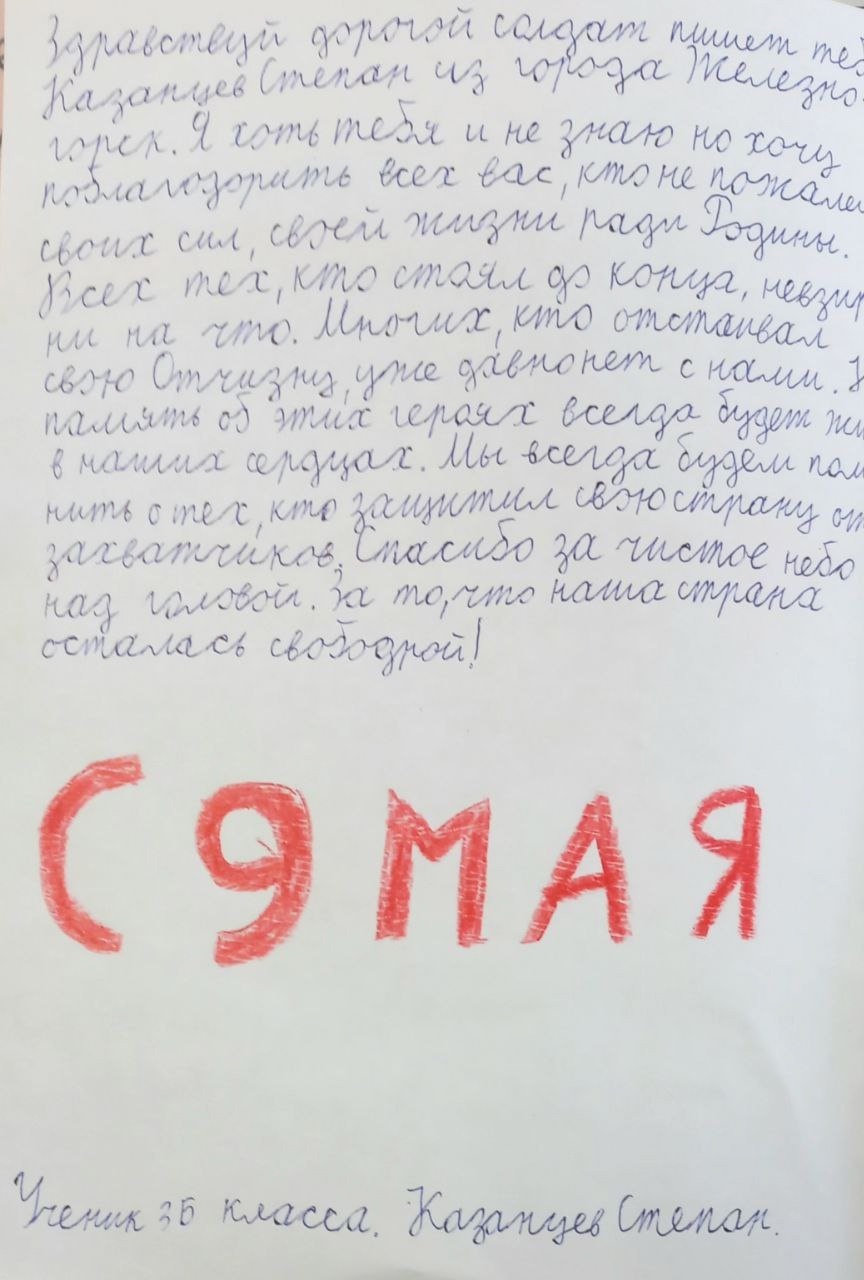 Здравствуй дорогой солдат пишет теб
Казанцев Степан из города Железно-
горск. Я хоть тебя и не знаю но хочу
поблагодорить всех вас, кто не пожалел
своих сил, своей жизни ради Родины.
Всех тех, кто стоял до конца, невзир
ни на что. Многих, кто отстаивал
свою Отчизну, уже давно нет с нами. Н
память об этих героях всегда будет жи
в наших сердцах. Мы всегда будем пом
нить о тех, кто защитил свою страну от
захватчиков. Спасибо за чистое небо
над головой. За то, что наша страна
осталась свободной!
С 9 МАЯ
Ученик 3Б класса. Казанцев Степан.